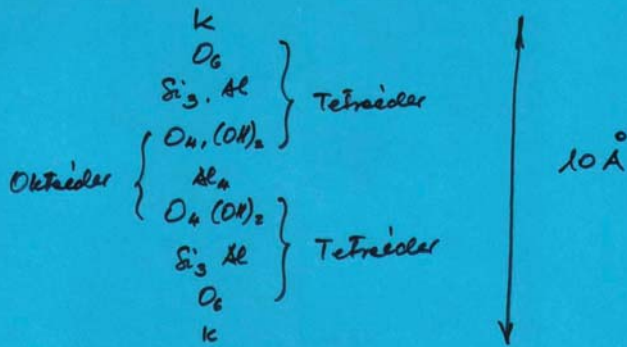 K
O₆
Si₃, Al } Tetraéder
O₄, (OH)₂
Oktaéder { Al₄
O₄ (OH)₂
Si₃ Al } Tetraéder
O₆
K
10 Å